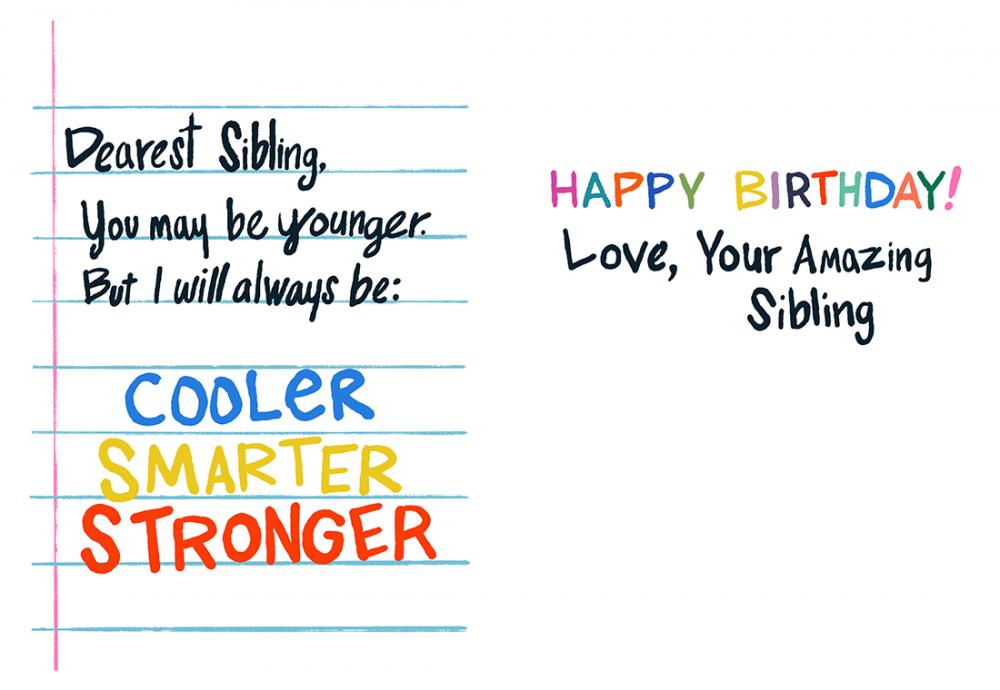 Dearest Sibling,
You may be younger.
But I will always be:
COOLeR
SMARTER
STRONGER
HAPPY BIRTHDAY!
Love, Your Amazing
Sibling